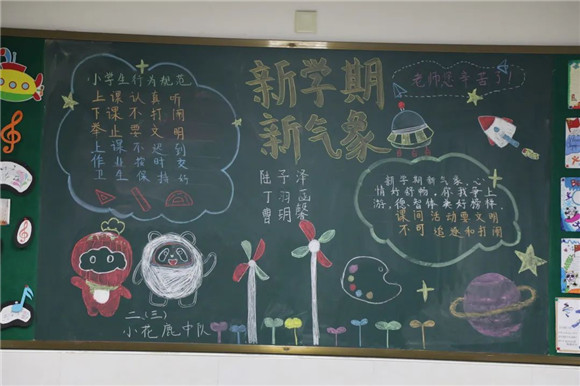 小学生行为规范
上课认真听
下课不打闹
举止要文明
上课不迟到
作业按时交
卫生保持好
新学期
新气象
老师您辛苦了!
陆子泽
丁羽
曹玥馨
新学期新气象,心
情好舒畅,你我争上
游,德智体美好榜样。
课间活动要文明
不可追逐和打闹
二(三)
小花鹿中队